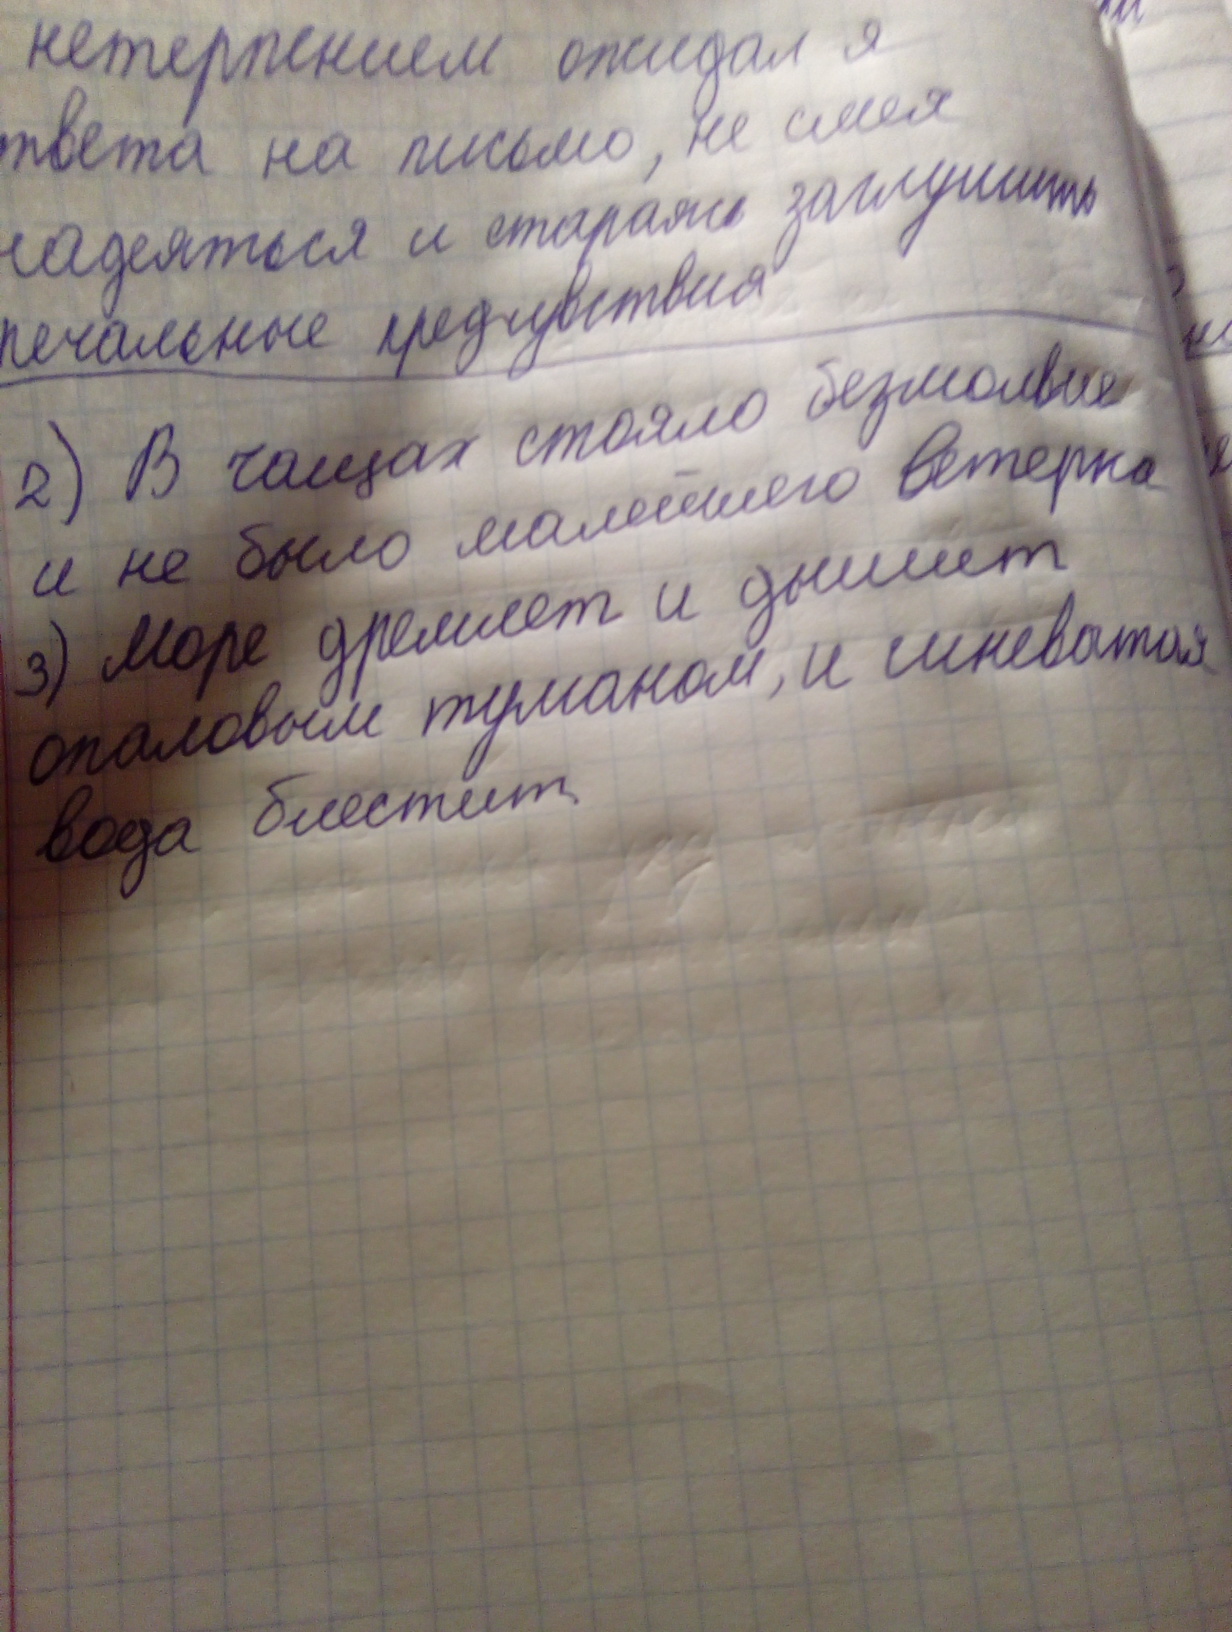 нетерпением ожидал я
твета на письмо, не смея
надеяться и стараясь заглушить
печальные предчувствия
2) В чащах стояло безмолвие
и не было малейшего ветерка
3) Море дремлет и дышит
опаловым туманом, и синеватая
вода блестит